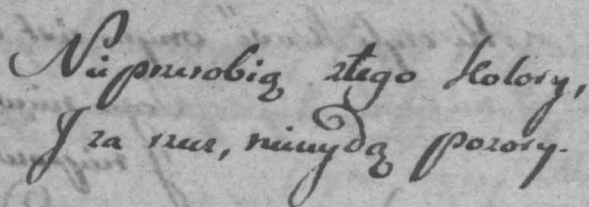 Nie przerobią złego kolory,
I za rzecz, nieuydą pozory.